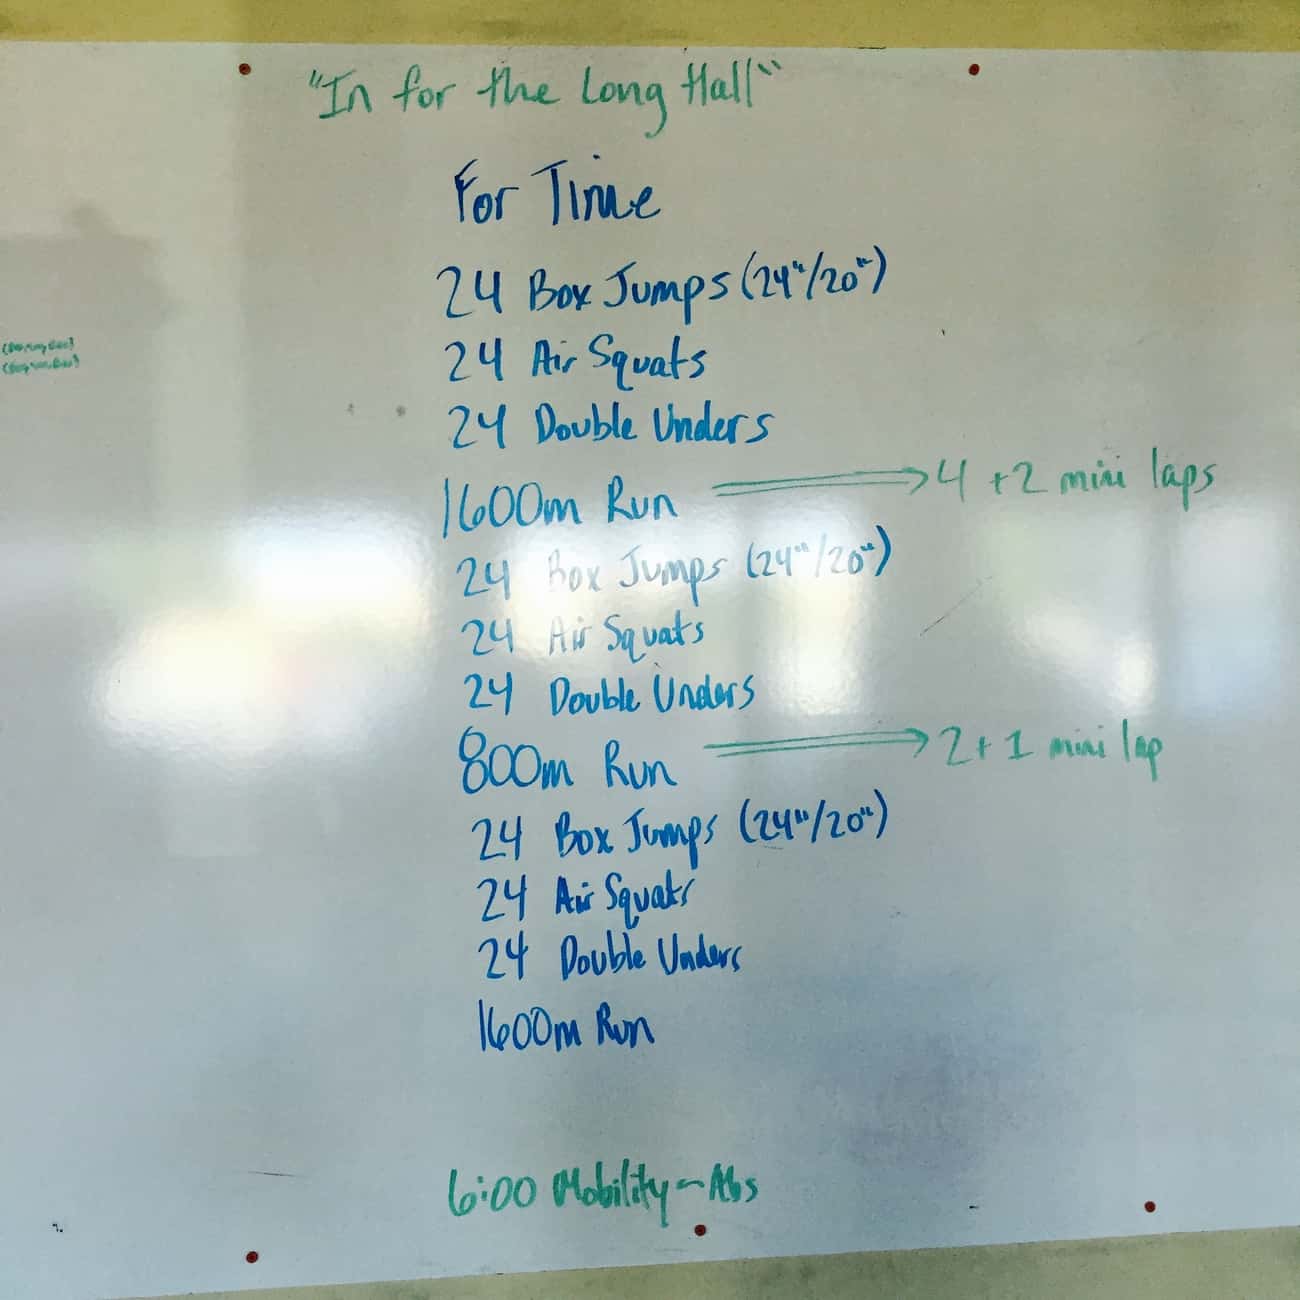 "In for the Long Hall"
For Time
24 Box Jumps (24"/20")
24 Air Squats
24 Double Unders
1600m Run ⟹ 4 + 2 mini laps
24 Box Jumps (24"/20")
24 Air Squats
24 Double Unders
800m Run ⟹ 2 + 1 mini lap
24 Box Jumps (24"/20")
24 Air Squats
24 Double Unders
1600m Run
6:00 Mobility - Abs